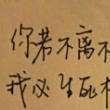 你若不离不
我必生死